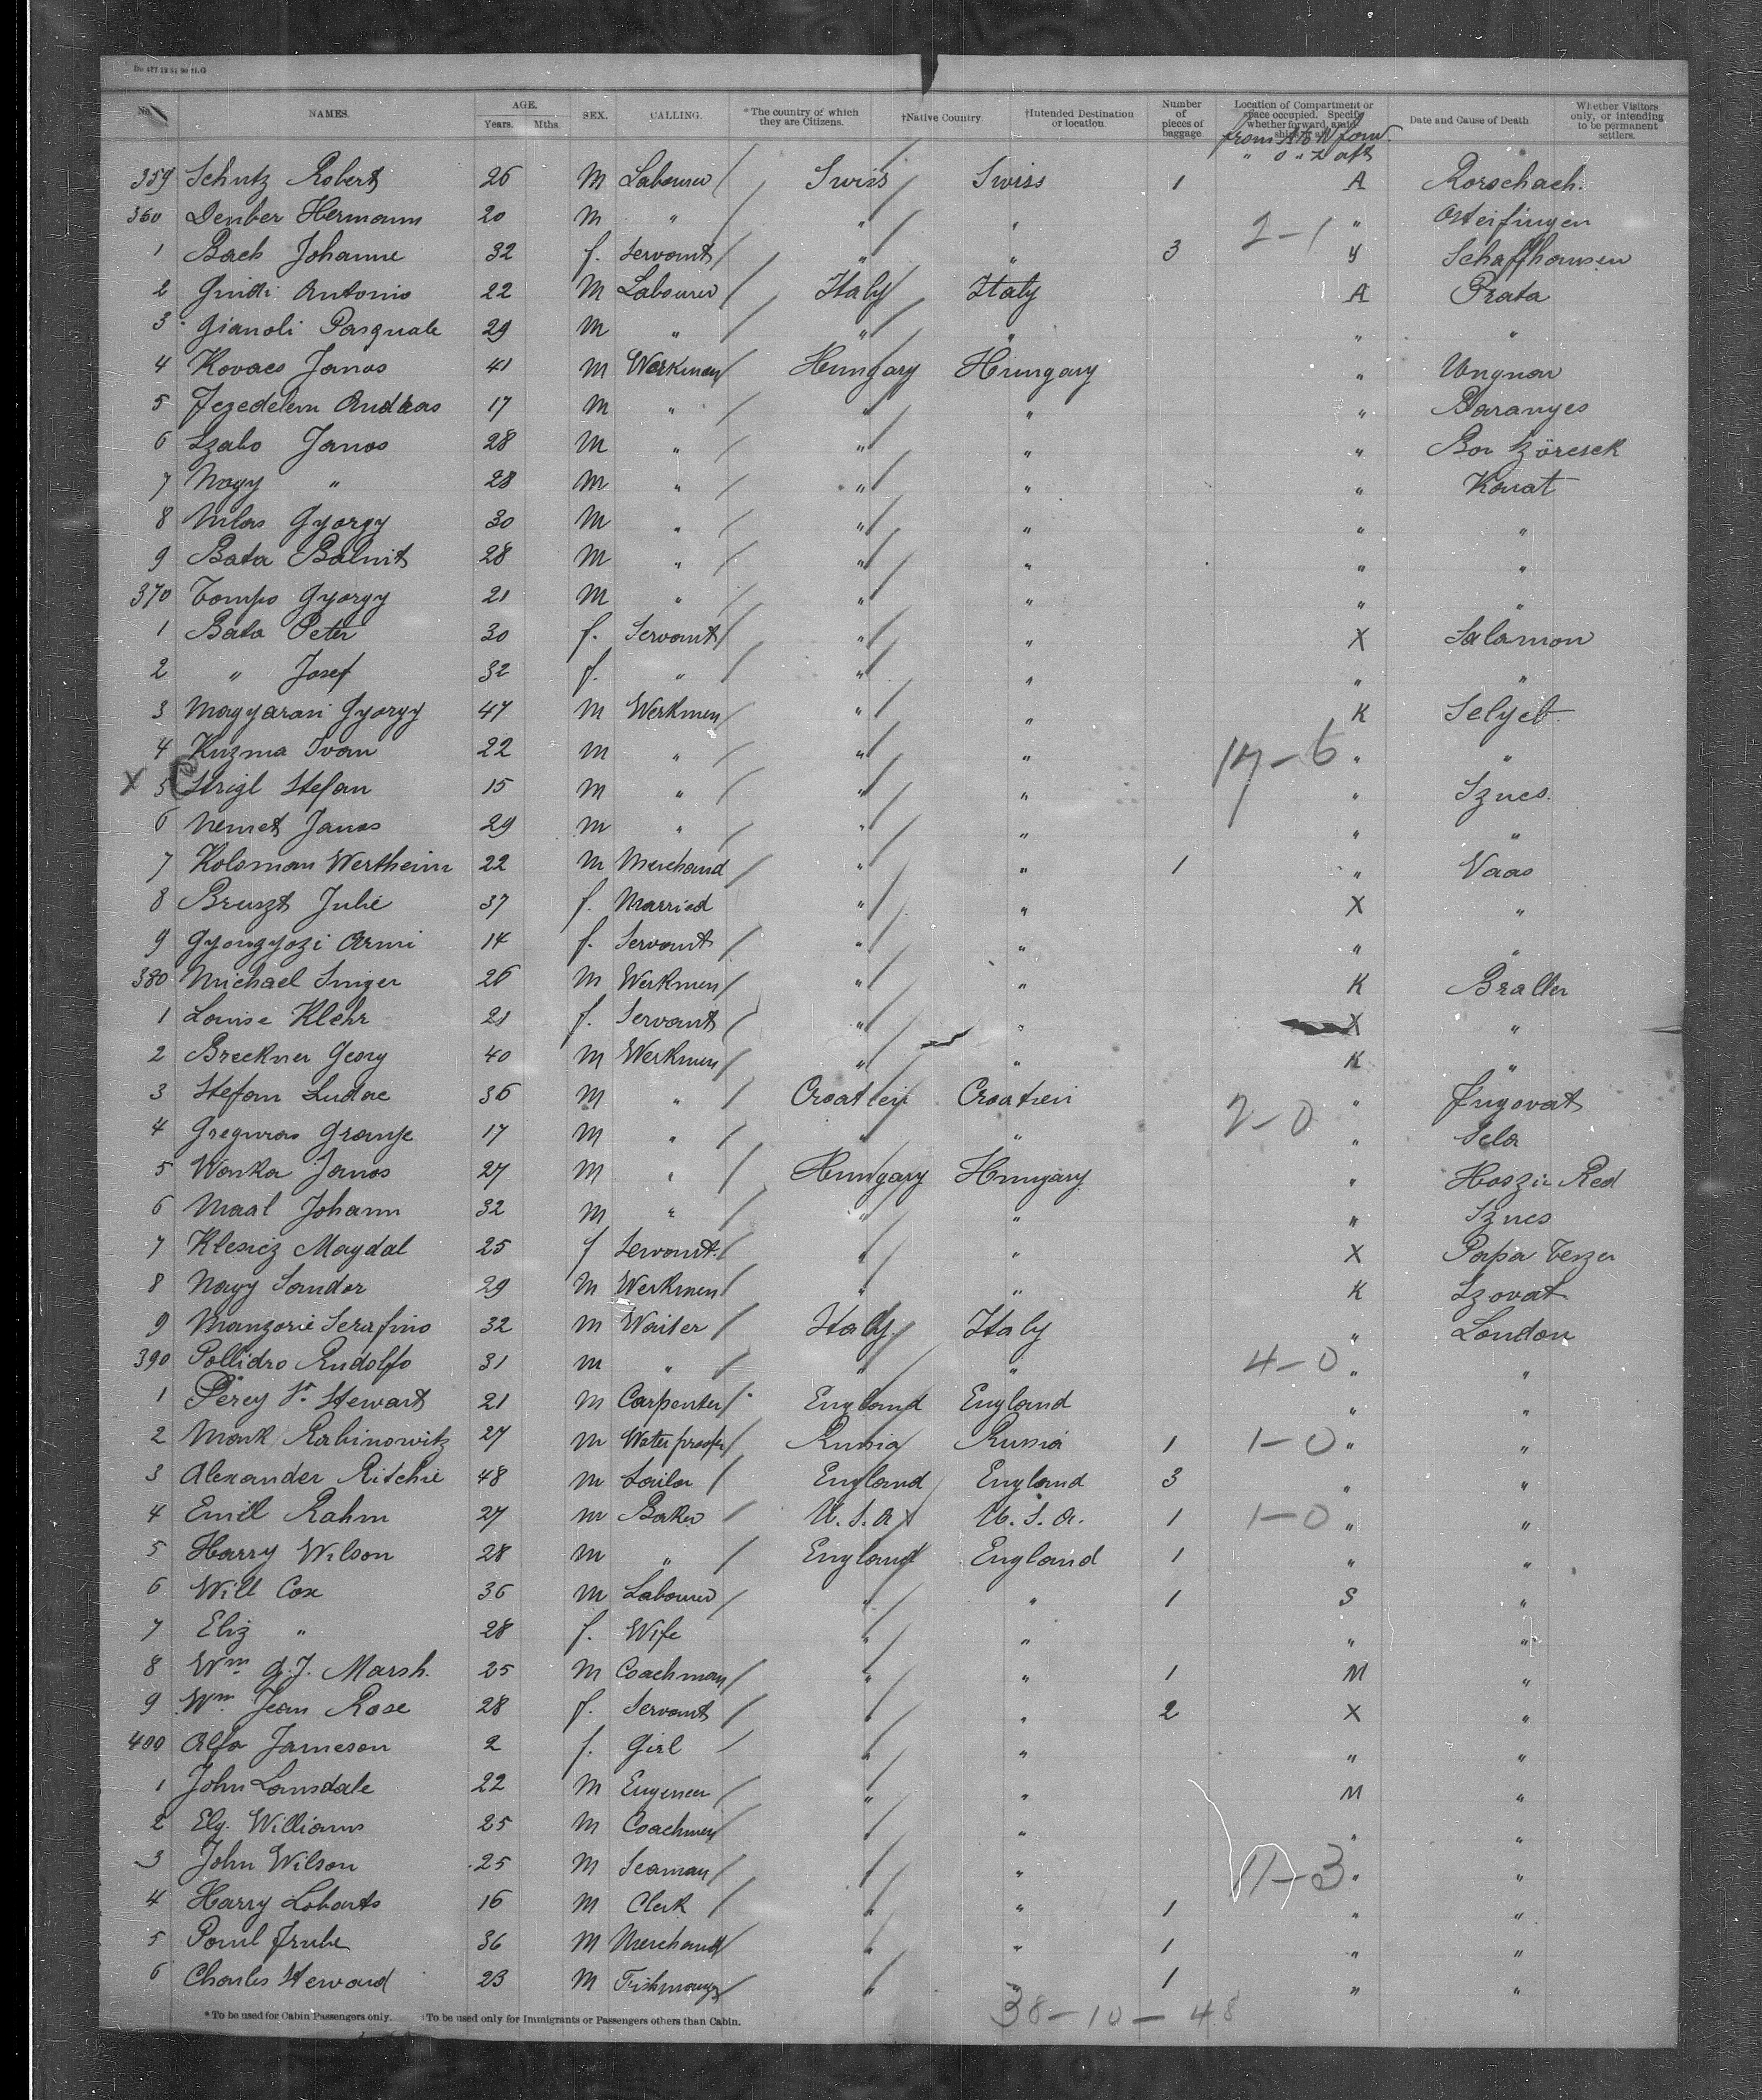 No. NAMES. AGE. Years. Mths. SEX. CALLING. *The country of which they are Citizens. †Native Country. †Intended Destination or location. Number of pieces of baggage Location of Compartment or space occupied. Specify whether forward, amidships or aft Date and Cause of Death Whether Visitors only, or intending to be permanent settlers.
from A to N forw.
" O " Z aft
359 Schutz Robert 26 M Labourer Swiss Swiss 1 A Rorschach.
360 Denber Hermann 20 M " " " " Osterfingen
2-1
1 Bach Johanne 32 f. Servant " " 3 y Schaffhausen
2 Guidi Antonio 22 M Labourer Italy Italy A Prata
3 Gianoli Pasquale 29 M " " " " "
4 Kovacs Janos 41 M Workmen Hungary Hungary " Ungnon
5 Fezedelem Andras 17 M " " " " Baranyes
6 Szabo Janos 28 M " " " "
7 Nagy " 28 M " " " " Konat
8 Mlas Gyorgy 30 M " " " " "
9 Bata Balint 28 M " " " " "
370 Tompo Gyorgy 21 M " " " " "
1 Bata Peter 30 f. Servant " " X Salamon
2 " Josef 32 f. " " " " "
3 Magyarasi Gyorgy 47 M Werkmen " " K Selyeb
4 Kuzma Ivan 22 M " " " " "
17-6
X 5 Strigl Stefan 15 M " " " " Sznes.
6 Nemet Janos 29 M " " " " "
7 Koloman Wertheim 22 M Merchand " " 1 " Vaas
8 Bruszt Julie 37 f. Married " " X "
9 Gyongyozi Armi 14 f. Servant " " " "
380 Michael Singer 26 M Werkmen " " K Braller
1 Louise Klehr 21 f. Servant " " X "
2 Breckner Georg 40 M Werkmen " " K "
3 Stefan Ludac 36 M " Croatien Croatien "
2-0
4 Greguras Granje 17 M " " " " Sela
5 Wanka Janos 27 M " Hungary Hungary "
6 Maal Johann 32 M " " " " Sznes
7 Klesicz Magdal 25 f Servant " " X Papa Teszer
8 Nagy Sandor 29 M Werkmen " " K Szovat
9 Manzorie Serafino 32 M Waiter Italy Italy " London
390 Pollidro Rudolfo 31 M " " " " "
4-0
1 Percy St. Stewart 21 M Carpenter England England " "
2 Mark Rabinowitz 27 M Waterproofer Russia Russia 1 1-0 " "
3 Alexander Ritchie 48 M Sailor England England 3 " "
4 Emil Rahm 27 M Baker U.S.A. U.S.A. 1 1-0 " "
5 Harry Wilson 28 M " England England 1 " "
6 Will Cox 36 M Labourer " " 1 S "
7 Eliz " 28 f. Wife " " " "
8 Wm G.J. Marsh. 25 M Coachman " " 1 M "
9 Wm Jean Rose 28 f. Servant " " 2 X "
400 Alfa Jameson 2 f. Girl " " " "
1 John Lansdale 22 M Engeneer " " M "
2 Elg. Williams 25 M Coachmen " " " "
3 John Wilson 25 M Seaman " " 11-3 " "
4 Harry Lobarts 16 M Clerk " " 1 " "
5 Paul Grube 36 M Merchand " " 1 " "
6 Charles Steward 23 M Fishmonger " " 1 " "
38-10-48
*To be used for Cabin Passengers only. †To be used only for Immigrants or Passengers others than Cabin.